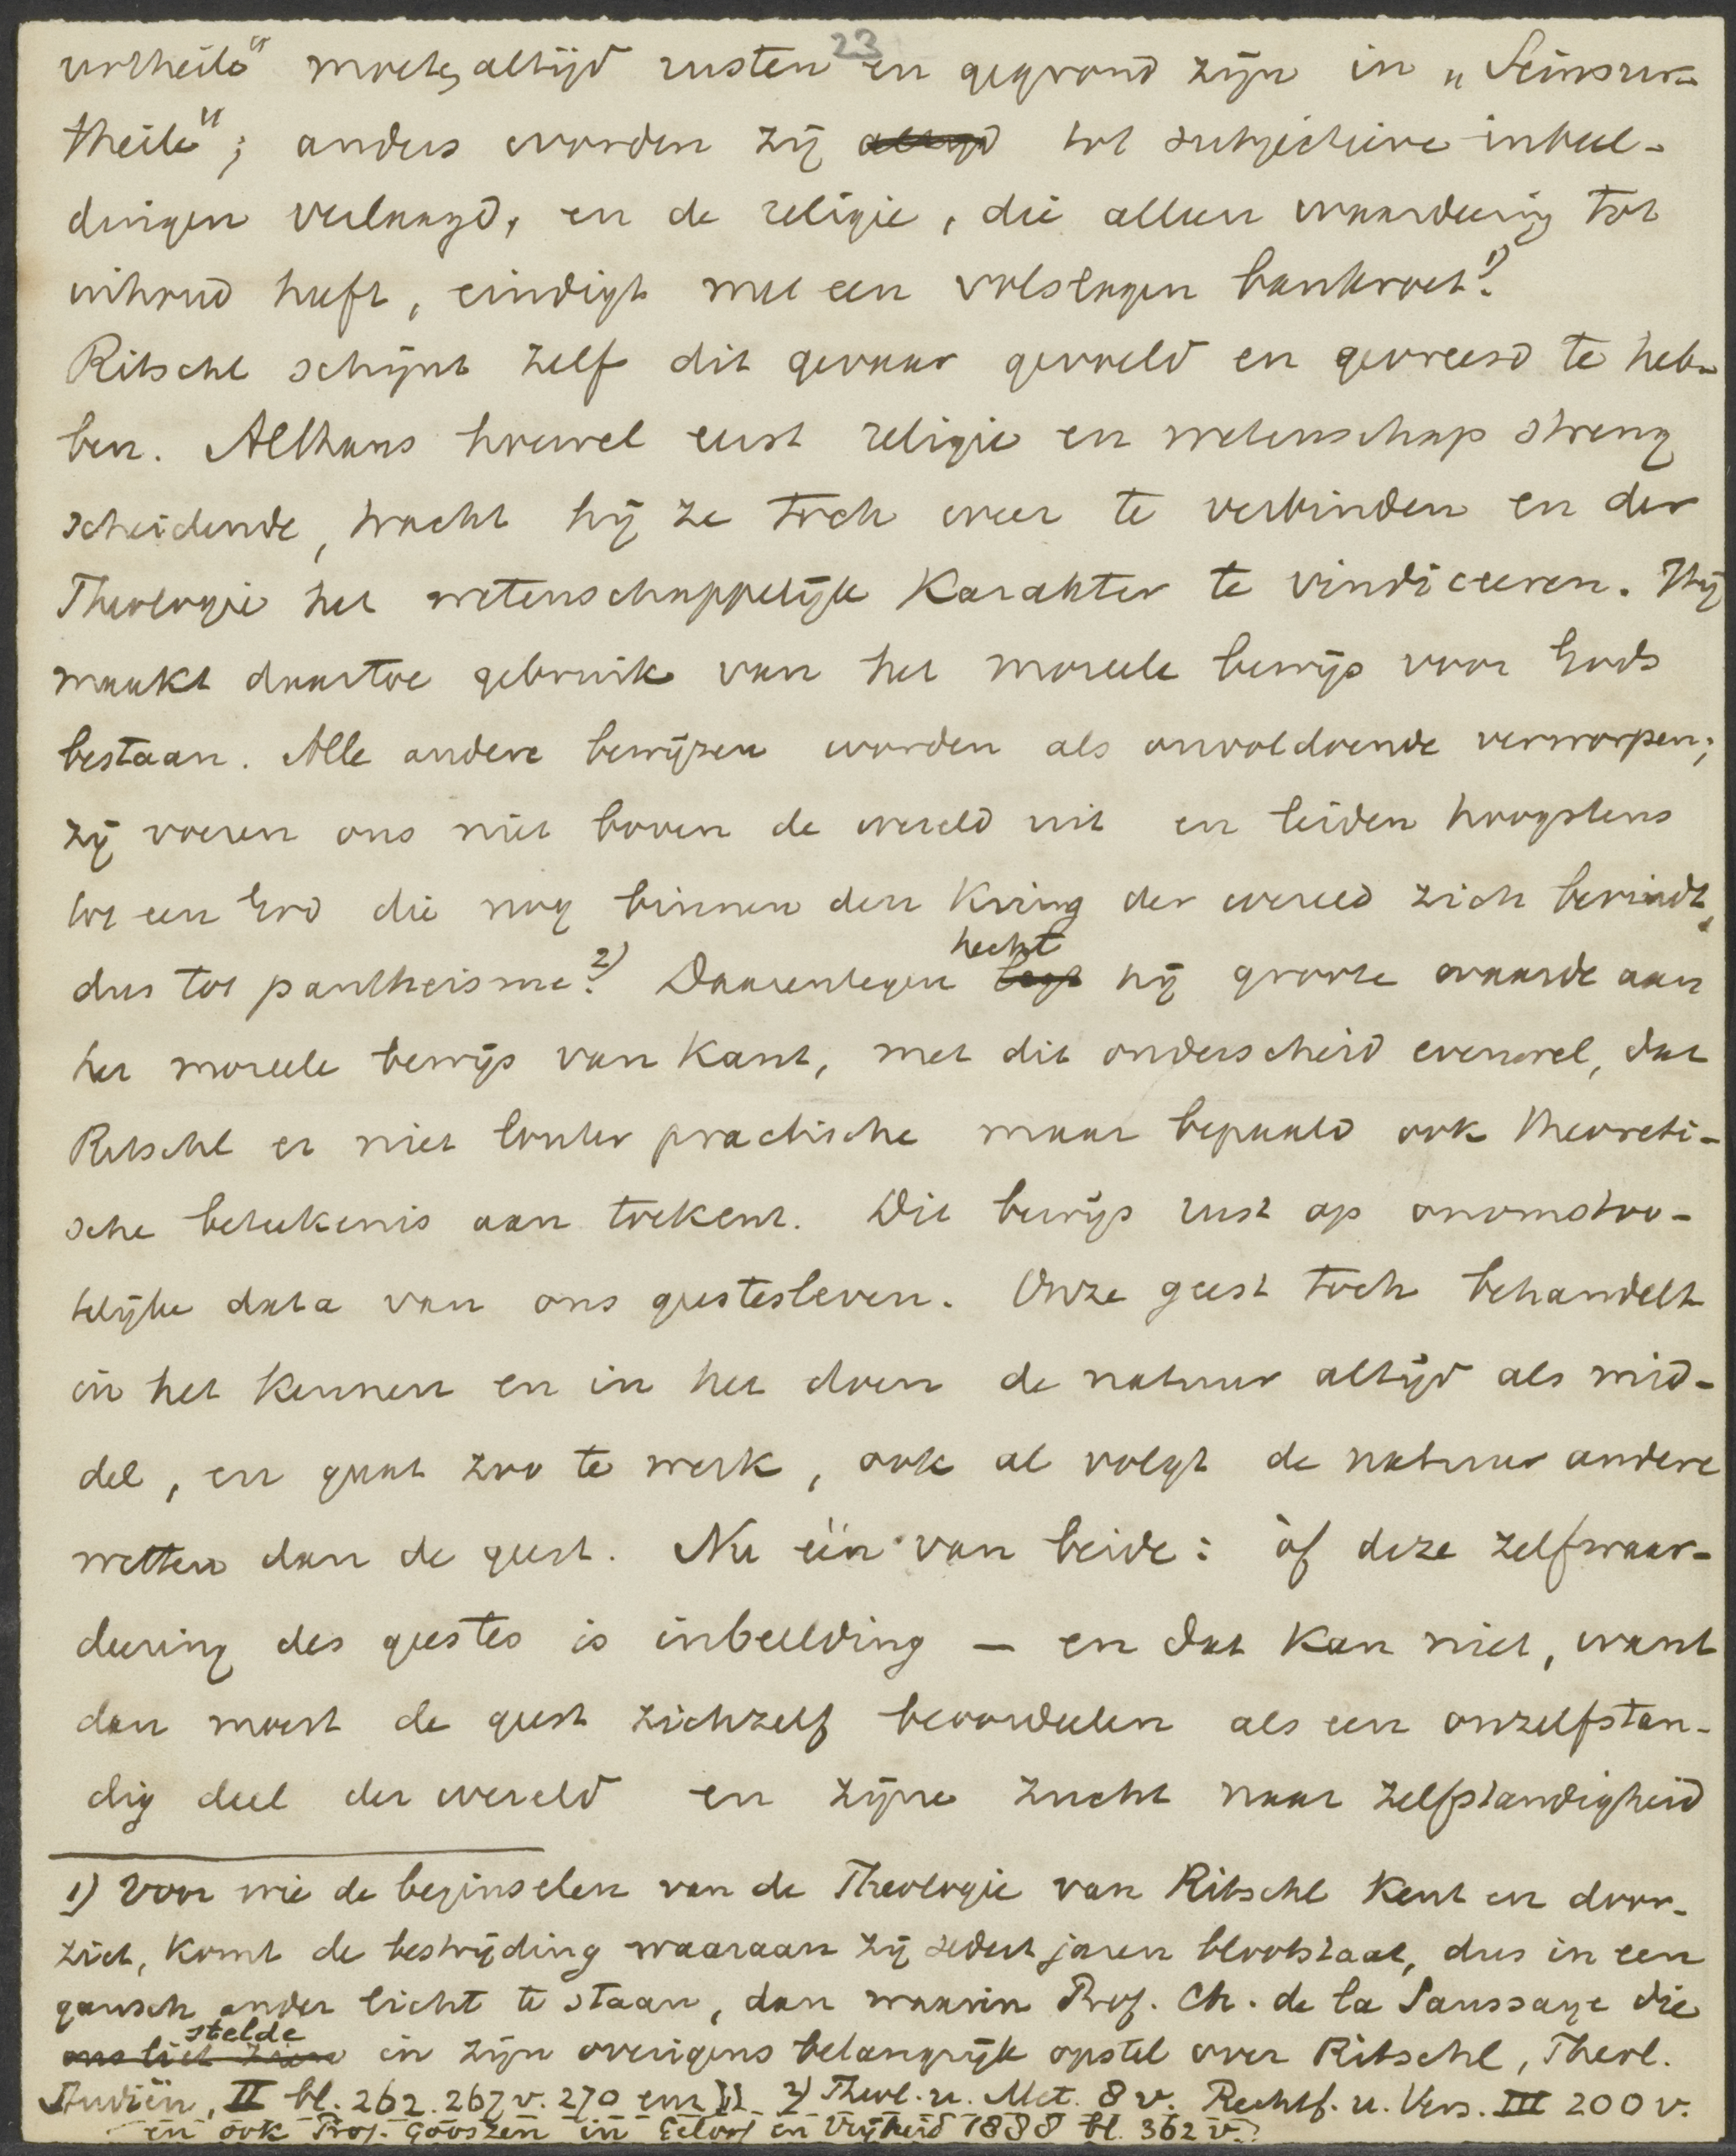 23
urtheile" moeten altijd rusten en gegrond zijn in „Seinsur-
theile"; anders worden zij altijd tot subjectieve inbeel-
dingen verlaagd, en de religie, die alleen waardeering tot
inhoud heeft, eindigt met een volslagen bankroet.1)
Ritschl schijnt zelf dit gevaar gevoeld en gevreesd te heb-
ben. Althans hoewel eerst religie en wetenschap streng
scheidende, tracht hij ze toch weer te verbinden en der
Theologie het wetenschappelijk karakter te vindiceeren. Hij
maakt daartoe gebruik van het moreele bewijs voor Gods
bestaan. Alle andere bewijzen worden als onvoldoende verworpen;
zij voeren ons niet boven de wereld uit en leiden hoogstens
tot een God die nog binnen den kring der wereld zich bevindt,
dus tot pantheisme.2) Daarentegen legt hecht hij groote waarde aan
het moreele bewijs van Kant, met dit onderscheid evenwel, dat
Ritschl er niet louter practische maar bepaald ook theoreti-
sche beteekenis aan toekent. Dit bewijs rust op onomstoo-
telijke data van ons geestesleven. Onze geest toch behandelt
in het kennen en in het doen de natuur altijd als mid-
del, en gaat zoo te werk, ook al volgt de natuur andere
wetten dan de geest. Nu één van beide: òf deze zelfwaar-
deering des geestes is inbeelding — en dat kan niet, want
dan moest de geest zichzelf beoordeelen als een onzelfstan-
dig deel der wereld en zijne zucht naar zelfstandigheid
1) Voor wie de beginselen van de Theologie van Ritschl kent en door-
ziet, komt de bestrijding waaraan zij sedert jaren blootstaat, dus in een
gansch ander licht te staan, dan waarin Prof. Ch. de la Saussaye die
ons liet zien stelde in zijn overigens belangrijk opstel over Ritschl, Theol.
Studiën, II bl. 262. 267 v. 270 enz. 2) Theol. u. Met. 8 v. Rechtf. u. Vers. III 200 v.
en ook Prof. Gooszen in Geloof en Vrijheid 1888 bl. 362 v.